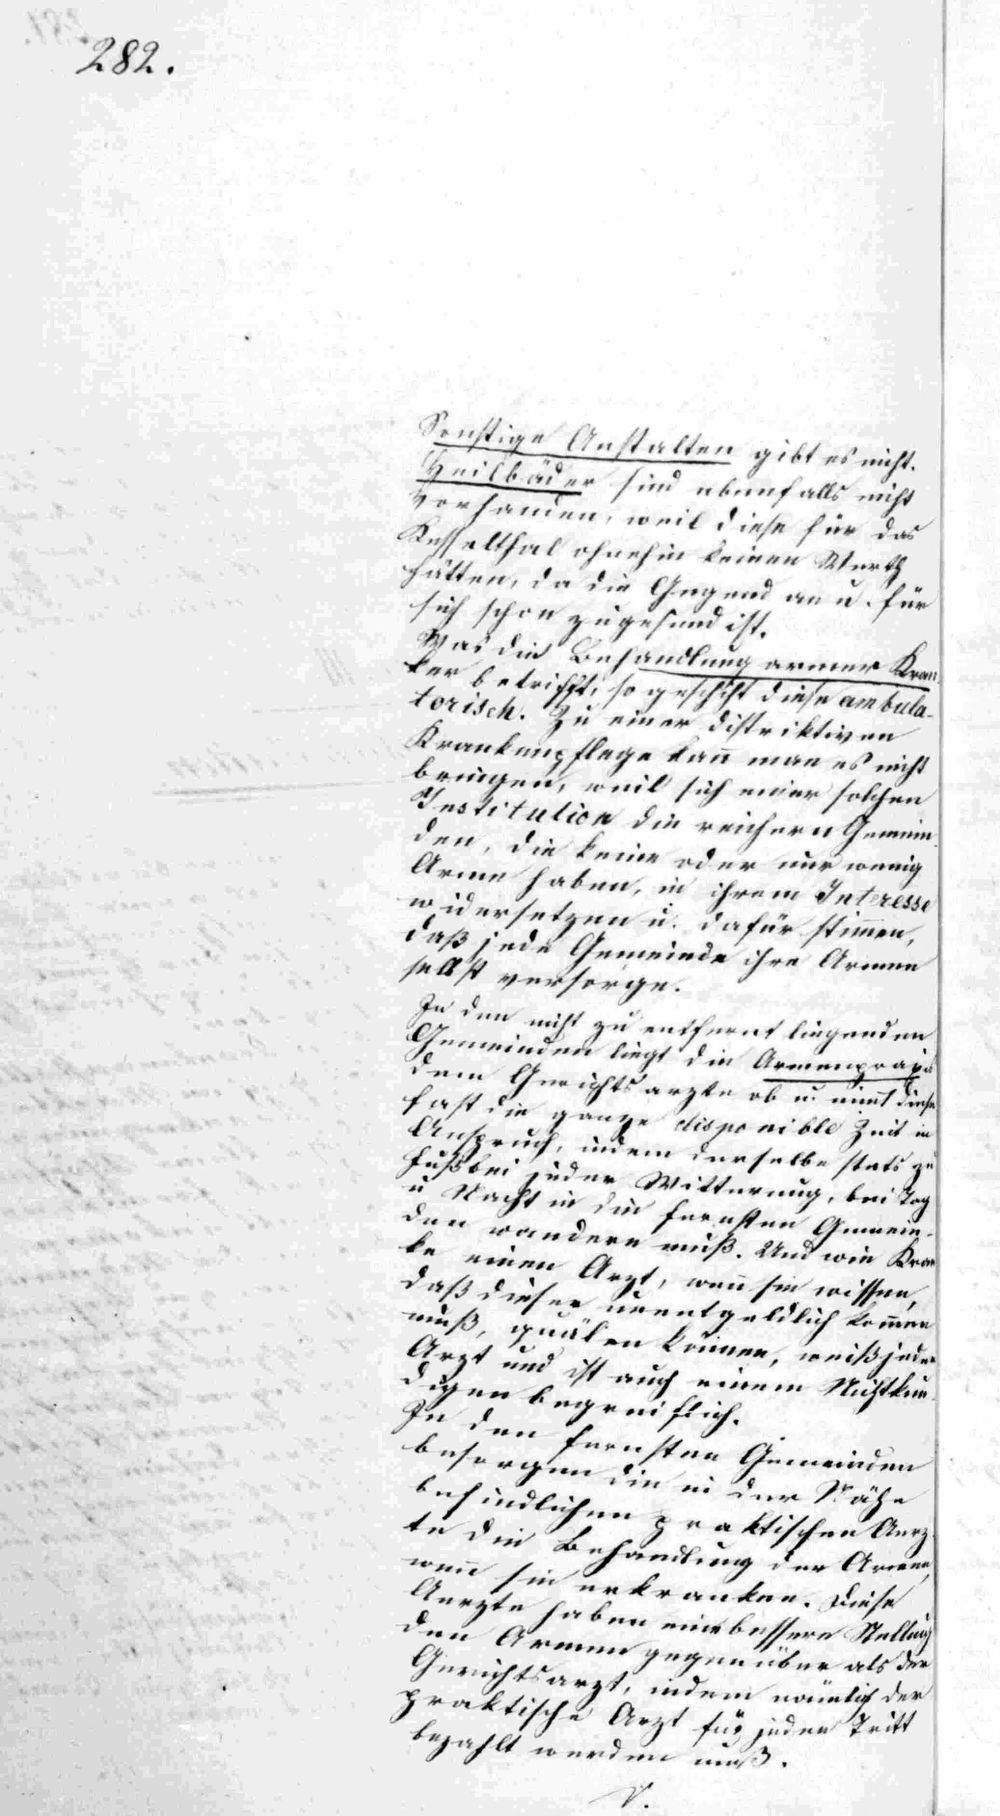 282.
Sonstige Anstalten gibt es nicht.
Heilbäder sind ebenfalls nicht
vorhanden, weil diese für das
Kesselthal ohnehin keinen Werth
hätten, da die Gegend an u. für
sich schon zu gesund ist.
Was die Behandlung armer Kran-
ker betrifft, so geschiht diese ambula-
torisch. Zu einer distriktiven
Krankenpflege kan̄ man es nicht
bringen, weil sich einer solchen
Institution die reichern Gemein-
den, die keine oder nur wenig
Arme haben, in ihrem Interesse
widersetzen u. dafür stim̄en,
daß jede Gemeinde ihre Armen
selbst versorge.
In den nicht zu entfernt liegenden
Gemeinden liegt die Armenpraxis
dem Gerichtsarzte ob u. nim̄t diese
fast die ganze disponible Zeit in
Anspruch, indem derselbe stets zu
Fuß bei jeder Witterung, bei Tag
u Nacht in die fernsten Gemein-
den wandern muß. Und wie Kran
ke einen Arzt, wen̄ sie wissen,
daß dieser unentgeldlich kom̄en
muß, quälen können, weiß jeder
Arzt und ist auch einem Nichtkun-
digen begreiflich.
In den fernsten Gemeinden
besorgen die in der Nähe
befindlichen praktischen Aerz-
te die Behandlung der Armen,
wen̄ sie erkranken. Diese
Aerzte haben eine bessere Stellung
den Armen gegenüber als der
Gerichtsarzt, indem nämlich der
praktische Arzt für jeden Tritt
bezahlt werden muß.
V.